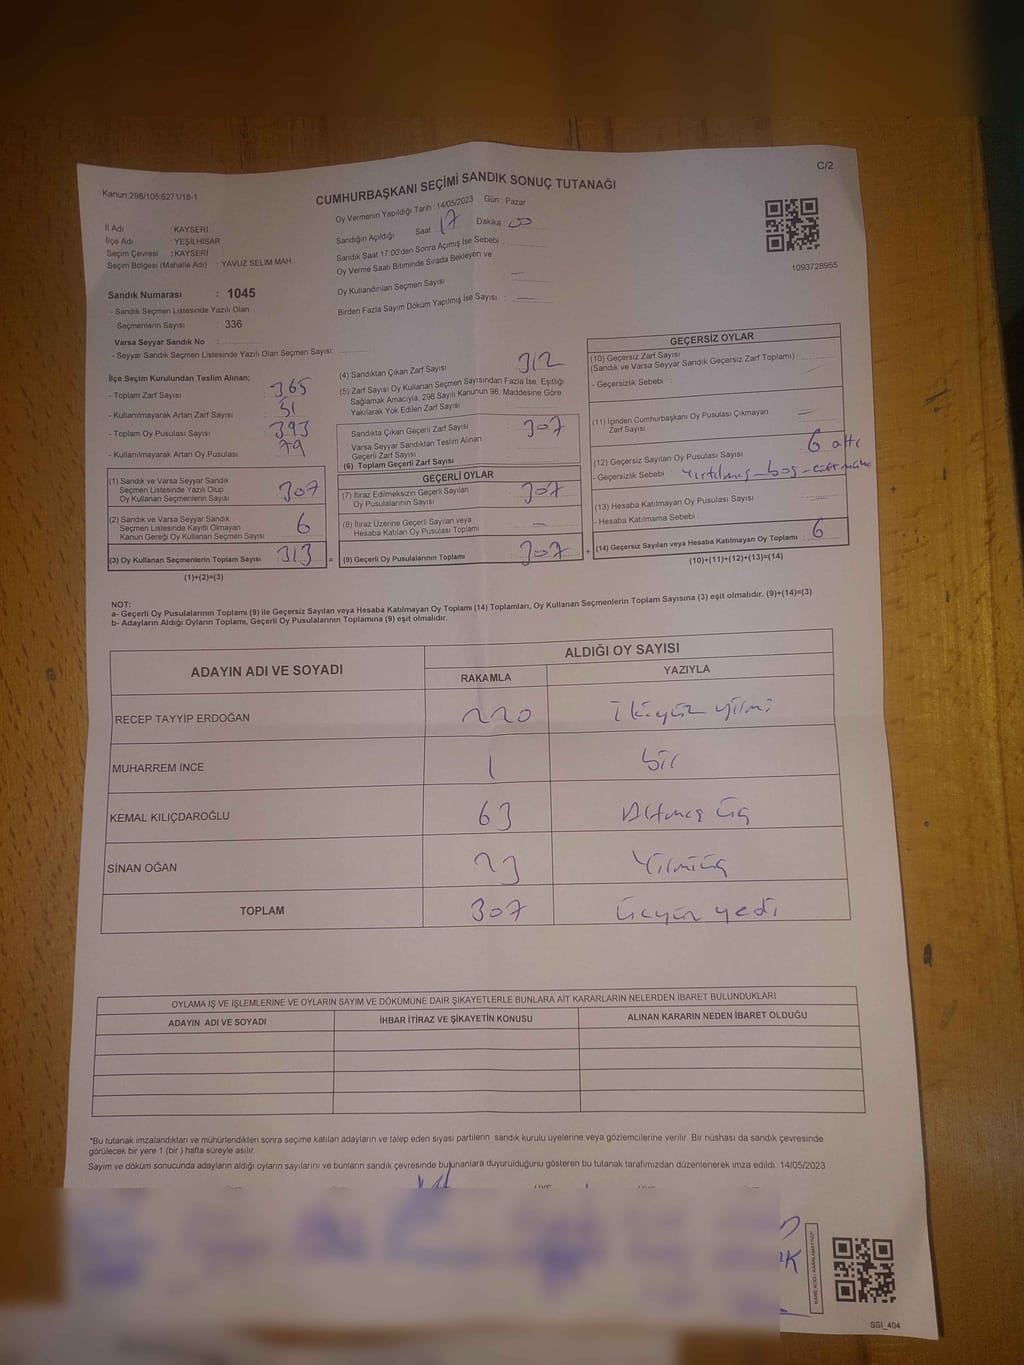 C/2
Kanun;298/105;6271/18-1
CUMHURBAŞKANI SEÇİMİ SANDIK SONUÇ TUTANAĞI
İl Adı : KAYSERİ
İlçe Adı : YEŞİLHİSAR
Seçim Çevresi : KAYSERİ
Seçim Bölgesi (Mahalle Adı) : YAVUZ SELİM MAH.
Sandık Numarası : 1045
- Sandık Seçmen Listesinde Yazılı Olan
Seçmenlerin Sayısı : 336
Varsa Seyyar Sandık No :
- Seyyar Sandık Seçmen Listesinde Yazılı Olan Seçmen Sayısı:
Oy Vermenin Yapıldığı Tarih : 14/05/2023 Gün : Pazar
Sandığın Açıldığı Saat 17 Dakika : 00
Sandık Saat 17:00'den Sonra Açımış İse Sebebi
Oy Verme Saati Bitiminde Sırada Bekleyen ve
Oy Kullandırılan Seçmen Sayısı : —
Birden Fazla Sayım Döküm Yapılmış İse Sayısı : —
1093728955
İlçe Seçim Kurulundan Teslim Alınan;
- Toplam Zarf Sayısı : 365
- Kullanılmayarak Artan Zarf Sayısı : 51
- Toplam Oy Pusulası Sayısı : 393
- Kullanılmayarak Artan Oy Pusulası : 79
(1) Sandık ve Varsa Seyyar Sandık
Seçmen Listesinde Yazılı Olup
Oy Kullanan Seçmenlerin Sayısı : 307
(2) Sandık ve Varsa Seyyar Sandık
Seçmen Listesinde Kayıtlı Olmayan
Kanun Gereği Oy Kullanan Seçmen Sayısı : 6
(3) Oy Kullanan Seçmenlerin Toplam Sayısı : 313
(1)+(2)=(3)
(4) Sandıktan Çıkan Zarf Sayısı : 312
(5) Zarf Sayısı Oy Kullanan Seçmen Sayısından Fazla İse, Eşitliği
Sağlamak Amacıyla, 298 Sayılı Kanunun 98. Maddesine Göre
Yakılarak Yok Edilen Zarf Sayısı :
Sandıkta Çıkan Geçerli Zarf Sayısı : 307
Varsa Seyyar Sandıktan Teslim Alınan
Geçerli Zarf Sayısı :
(6) Toplam Geçerli Zarf Sayısı
GEÇERLİ OYLAR
(7) İtiraz Edilmeksizin Geçerli Sayılan
Oy Pusulalarının Sayısı : 307
(8) İtiraz Üzerine Geçerli Sayılan veya
Hesaba Katılan Oy Pusulası Toplamı : —
= (9) Geçerli Oy Pusulalarının Toplamı : 307 +
GEÇERSİZ OYLAR
(10) Geçersiz Zarf Sayısı
(Sandık ve Varsa Seyyar Sandık Geçersiz Zarf Toplamı) :
- Geçersizlik Sebebi :
(11) İçinden Cumhurbaşkanı Oy Pusulası Çıkmayan
Zarf Sayısı : —
(12) Geçersiz Sayılan Oy Pusulası Sayısı : 6 altı
- Geçersizlik Sebebi : Yırtılmış - boş -
(13) Hesaba Katılmayan Oy Pusulası Sayısı :
- Hesaba Katılmama Sebebi :
(14) Geçersiz Sayılan veya Hesaba Katılmayan Oy Toplamı : 6
(10)+(11)+(12)+(13)=(14)
NOT:
a- Geçerli Oy Pusulalarının Toplamı (9) ile Geçersiz Sayılan veya Hesaba Katılmayan Oy Toplamı (14) Toplamları, Oy Kullanan Seçmenlerin Toplam Sayısına (3) eşit olmalıdır. (9)+(14)=(3)
b- Adayların Aldığı Oyların Toplamı, Geçerli Oy Pusulalarının Toplamına (9) eşit olmalıdır.
ADAYIN ADI VE SOYADI ALDIĞI OY SAYISI
RAKAMLA YAZIYLA
RECEP TAYYİP ERDOĞAN 220 İkiyüz yirmi
MUHARREM İNCE 1 bir
KEMAL KILIÇDAROĞLU 63 Altmış üç
SİNAN OĞAN 23 Yirmiüç
TOPLAM 307 Üçyüz yedi
OYLAMA İŞ VE İŞLEMLERİNE VE OYLARIN SAYIM VE DÖKÜMÜNE DAİR ŞİKAYETLERLE BUNLARA AİT KARARLARIN NELERDEN İBARET BULUNDUKLARI
ADAYIN ADI VE SOYADI İHBAR İTİRAZ VE ŞİKAYETİN KONUSU ALINAN KARARIN NEDEN İBARET OLDUĞU
*Bu tutanak imzalandıktan ve mühürlendikten sonra seçime katılan adayların ve talep eden siyasi partilerin sandık kurulu üyelerine veya gözlemcilerine verilir. Bir nüshası da sandık çevresinde
görülecek bir yere 1 (bir ) hafta süreyle asılır.
Sayım ve döküm sonucunda adayların aldığı oyların sayılarını ve bunların sandık çevresinde bulunanlara duyurulduğunu gösteren bu tutanak tarafımızdan düzenlenerek imza edildi. 14/05/2023
SSİ_404